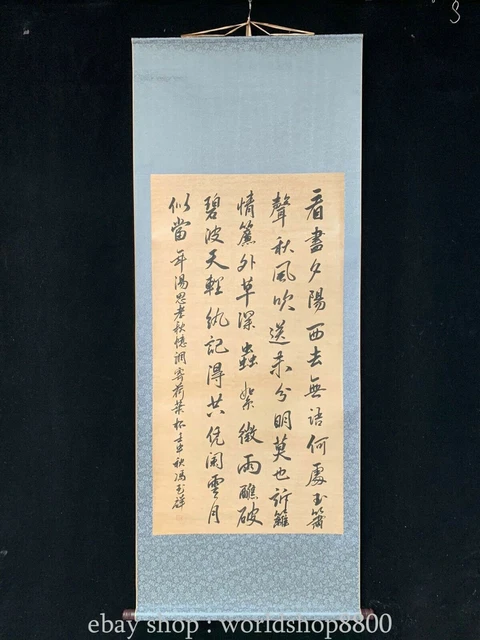 看盡夕陽西去無語何處玉簫
聲秋風吹送未分明莫也訴離
情簾外草深蟲絮微雨醮破
碧波天輕紈記得共凭闌雲月
似當年湯思孝秋憶調寄荷葉杯秋馮玉祥
ebay shop : worldshop8800